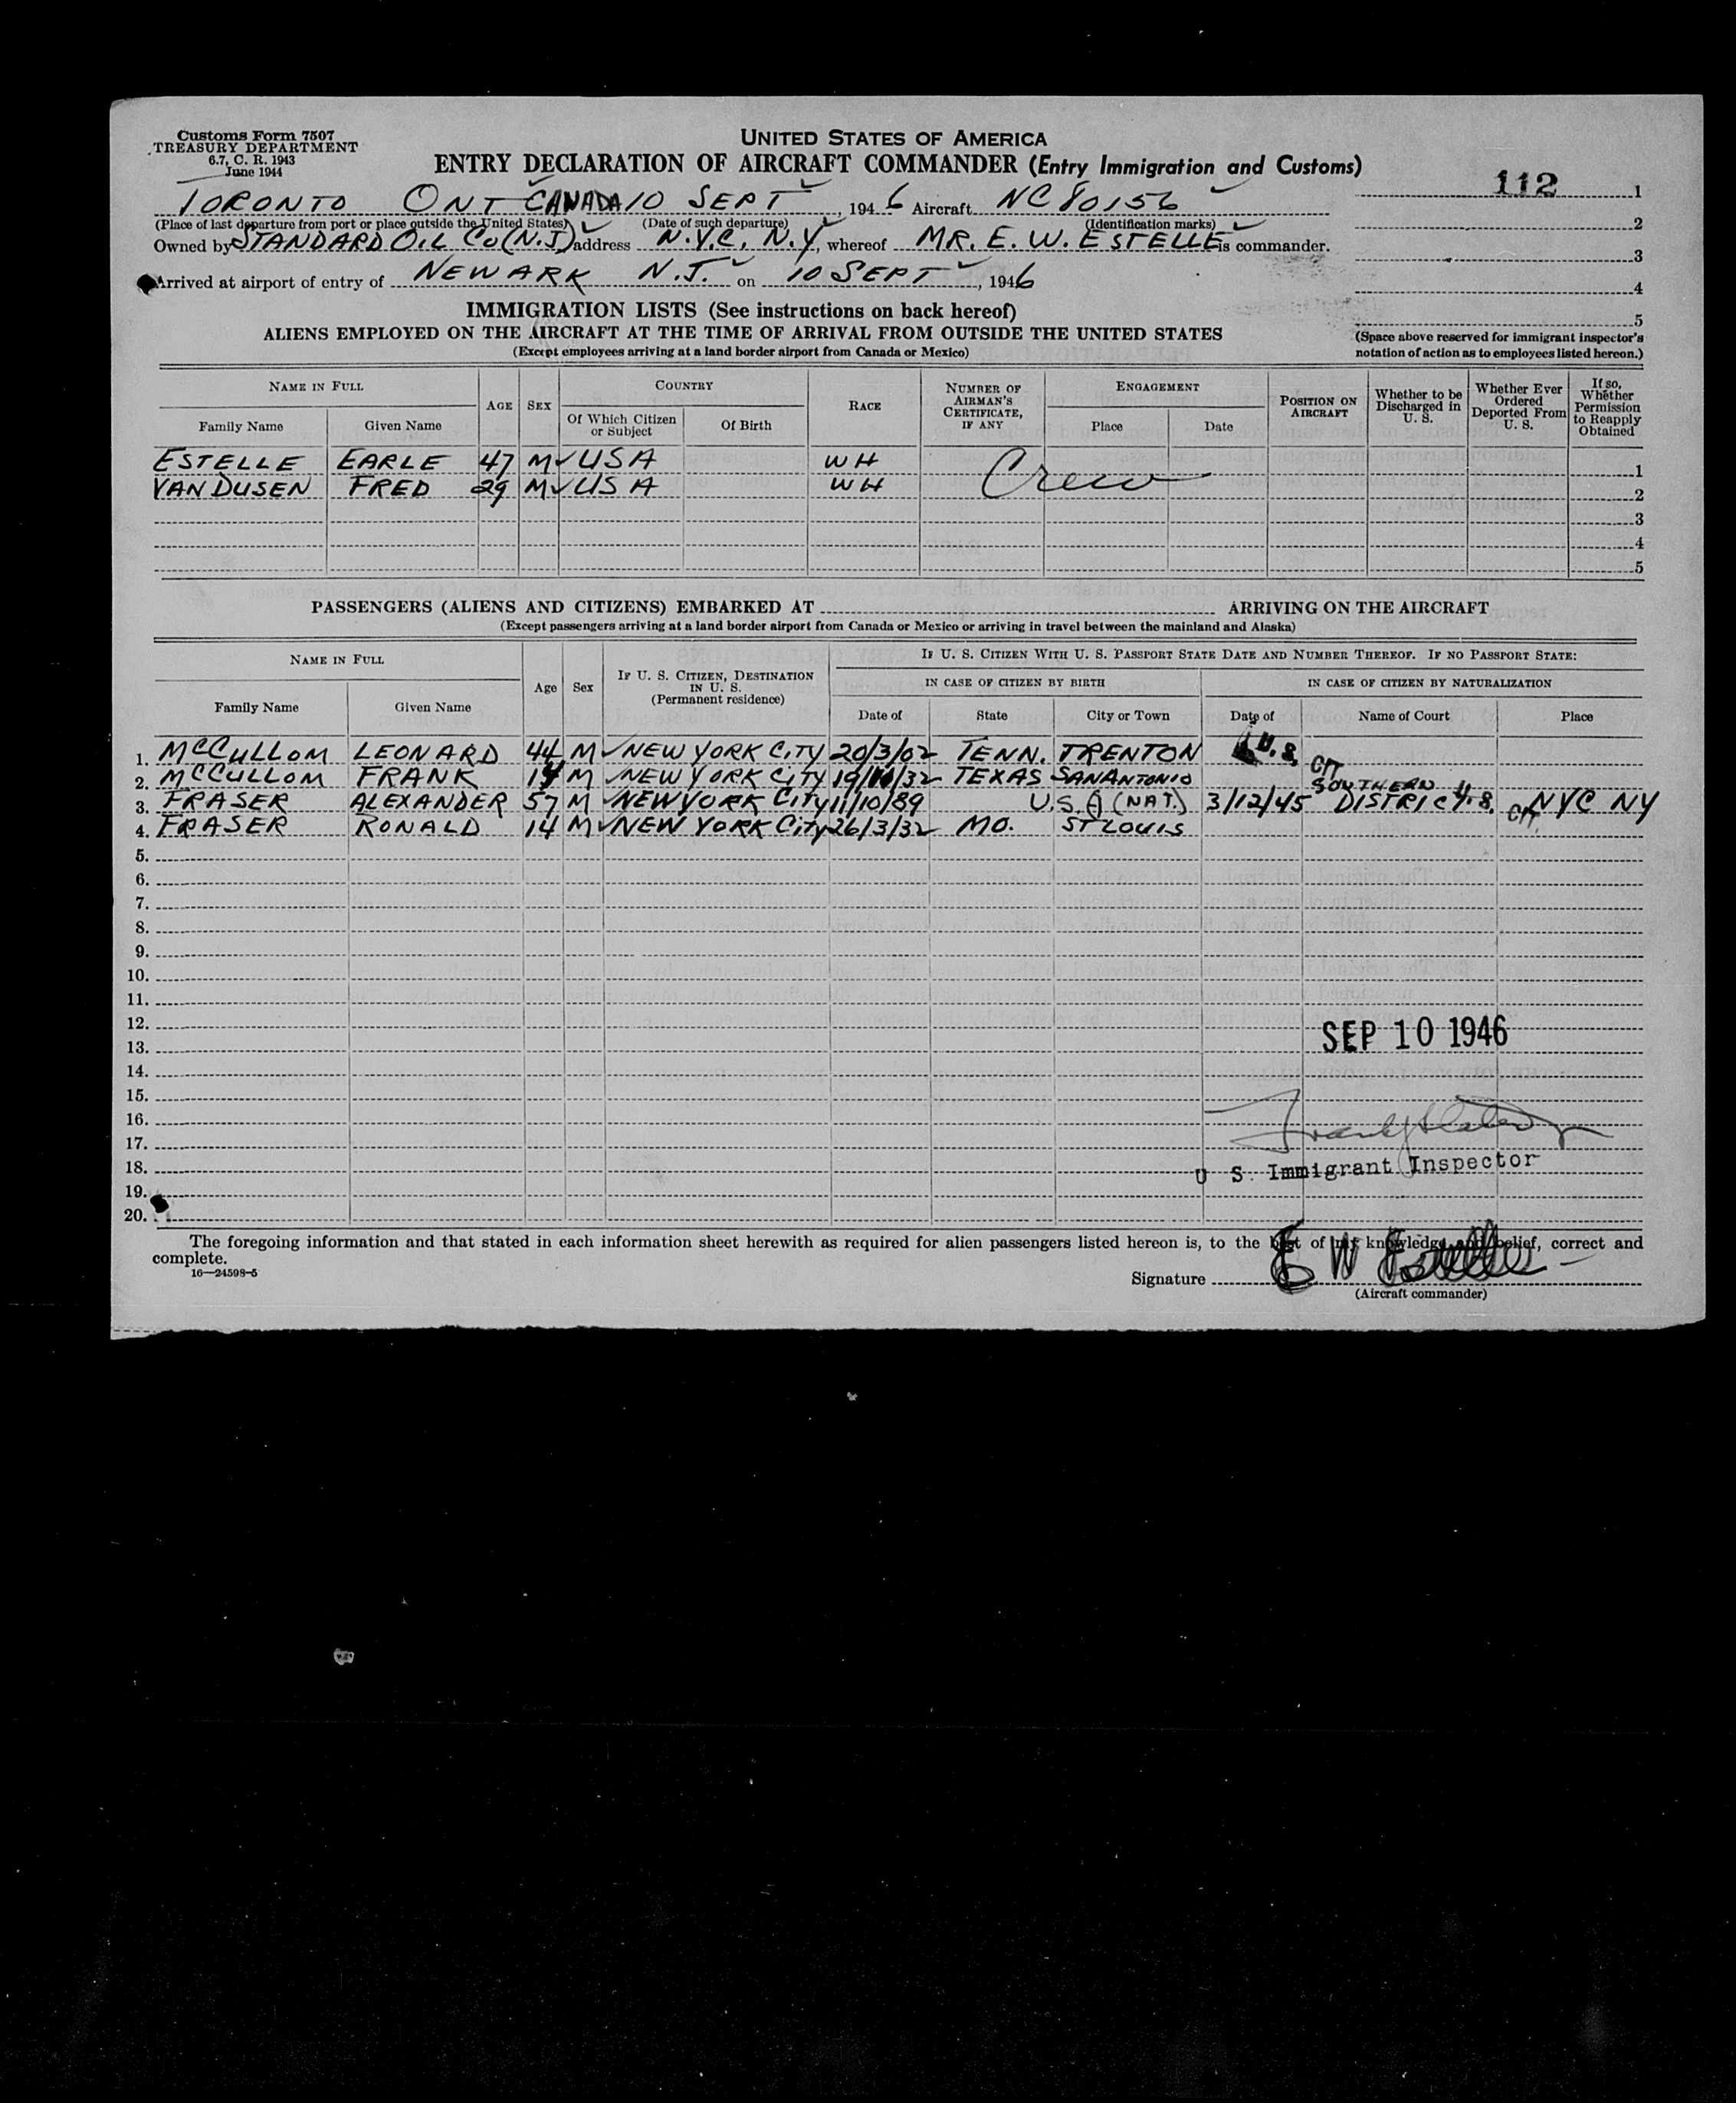 Customs Form 7507
TREASURY DEPARTMENT
6.7, C. R. 1943
June 1944
UNITED STATES OF AMERICA
ENTRY DECLARATION OF AIRCRAFT COMMANDER (Entry Immigration and Customs)
112 1
2
3
4
5
TORONTO ONT CANADA 10 SEPT, 1946 Aircraft NC 80156
(Place of last departure from port or place outside the United States) (Date of such departure) (Identification marks)
Owned by STANDARD OIL CO (N.J) address N.Y.C. N.Y, whereof MR. E. W. ESTELLE is commander.
Arrived at airport of entry of NEWARK N.J. on 10 SEPT, 1946
IMMIGRATION LISTS (See instructions on back hereof)
ALIENS EMPLOYED ON THE AIRCRAFT AT THE TIME OF ARRIVAL FROM OUTSIDE THE UNITED STATES
(Except employees arriving at a land border airport from Canada or Mexico)
(Space above reserved for immigrant inspector's
notation of action as to employees listed hereon.)
NAME IN FULL AGE SEX COUNTRY RACE NUMBER OF AIRMAN'S CERTIFICATE, IF ANY ENGAGEMENT POSITION ON AIRCRAFT Whether to be Discharged in U. S. Whether Ever Ordered Deported From U. S. If so, Whether Permission to Reapply Obtained
Family Name Given Name Of Which Citizen or Subject Of Birth Place Date
ESTELLE EARLE 47 M ✓ USA WH Crew 1
VAN DUSEN FRED 29 M ✓ USA WH 2
3
4
5
PASSENGERS (ALIENS AND CITIZENS) EMBARKED AT ARRIVING ON THE AIRCRAFT
(Except passengers arriving at a land border airport from Canada or Mexico or arriving in travel between the mainland and Alaska)
NAME IN FULL Age Sex IF U. S. CITIZEN, DESTINATION IN U. S. (Permanent residence) IF U. S. CITIZEN WITH U. S. PASSPORT STATE DATE AND NUMBER THEREOF. IF NO PASSPORT STATE:
IN CASE OF CITIZEN BY BIRTH IN CASE OF CITIZEN BY NATURALIZATION
Family Name Given Name Date of State City or Town Date of Name of Court Place
1. McCULLOM LEONARD 44 M ✓ NEW YORK CITY 20/3/02 TENN. TRENTON U.S. CIT
2. McCULLOM FRANK M ✓ NEW YORK CITY TEXAS SAN ANTONIO
3. FRASER ALEXANDER 57 M ✓ NEW YORK CITY 11/10/89 U.S.A (NAT.) 3/12/45 SOUTHERN DISTRICT U.S. CIT. NYC NY
4. FRASER RONALD 14 M ✓ NEW YORK CITY 26/3/32 MO. ST LOUIS
5.
6.
7.
8.
9.
10.
11.
12.
SEP 10 1946
13.
14.
15.
16.
17.
18. U S. Immigrant Inspector
19.
20.
The foregoing information and that stated in each information sheet herewith as required for alien passengers listed hereon is, to the best of my knowledge and belief, correct and
complete.
16—24598-5
Signature E W Estelle
(Aircraft commander)